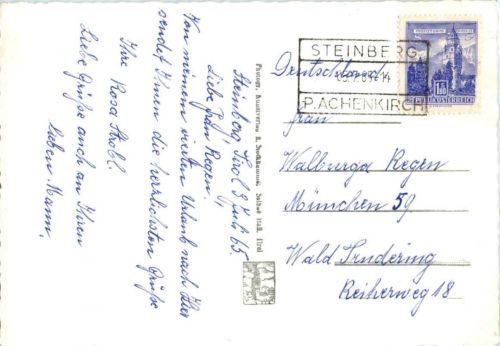 Steinberg, Tirol 9. Juli 65.
Liebe Frau Regen.
Von meinem vierten Urlaub nach hier
sendet Ihnen die herzlichsten Grüße
Ihre Rosa Strobl.
Liebe Grüße auch an Ihren
lieben Mann.
Photogr. Kunstverlag Solbad Hall, Tirol
STEINBERG
P. ACHENKIRCH
REPUBLIK ÖSTERREICH
Deutschland
Frau
Walburga Regen
München 59
Wald Trudering
Reiherweg 18